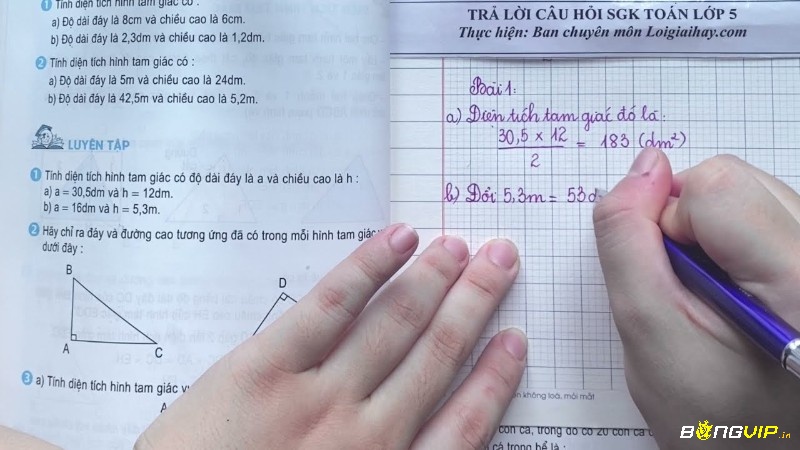 1 Tính diện tích hình tam giác có :
a) Độ dài đáy là 8cm và chiều cao là 6cm.
b) Độ dài đáy là 2,3dm và chiều cao là 1,2dm.
2 Tính diện tích hình tam giác có :
a) Độ dài đáy là 5m và chiều cao là 24dm.
b) Độ dài đáy là 42,5m và chiều cao là 5,2m.
LUYỆN TẬP
1 Tính diện tích hình tam giác có độ dài đáy là a và chiều cao là h :
a) a = 30,5dm và h = 12dm.
b) a = 16dm và h = 5,3m.
2 Hãy chỉ ra đáy và đường cao tương ứng đã có trong mỗi hình tam giác
dưới đây :
B
A
C
D
3 a) Tính diện tích hình tam giác
A
TRẢ LỜI CÂU HỎI SGK TOÁN LỚP 5
Thực hiện: Ban chuyên môn Loigiaihay.com
Bài 1:
a) Diện tích tam giác đó là:
30,5 x 12
2
= 183 (dm²)
b) Đổi 5,3m = 53d
không loá, mỏi mắt
con cá, trong đó có 20 con cá
cá trong bể là :
BONGVIP.in